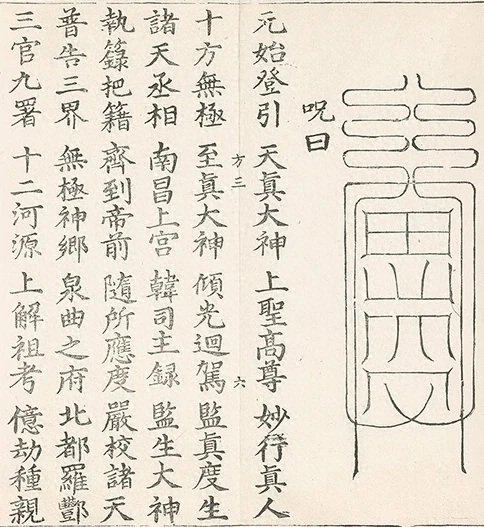 呪曰
元始登引 天眞大神 上聖髙尊 妙行眞人
十方無極 至眞大神 傾光迴駕 監眞度生
諸天丞相 南昌上宮 韓司主録 監生大神
執籙把籍 齊到帝前 隨所應度 嚴校諸天
普告三界 無極神鄉 泉曲之府 北都羅酆
三官九署 十二河源 上解祖考 億劫種親
方三
六